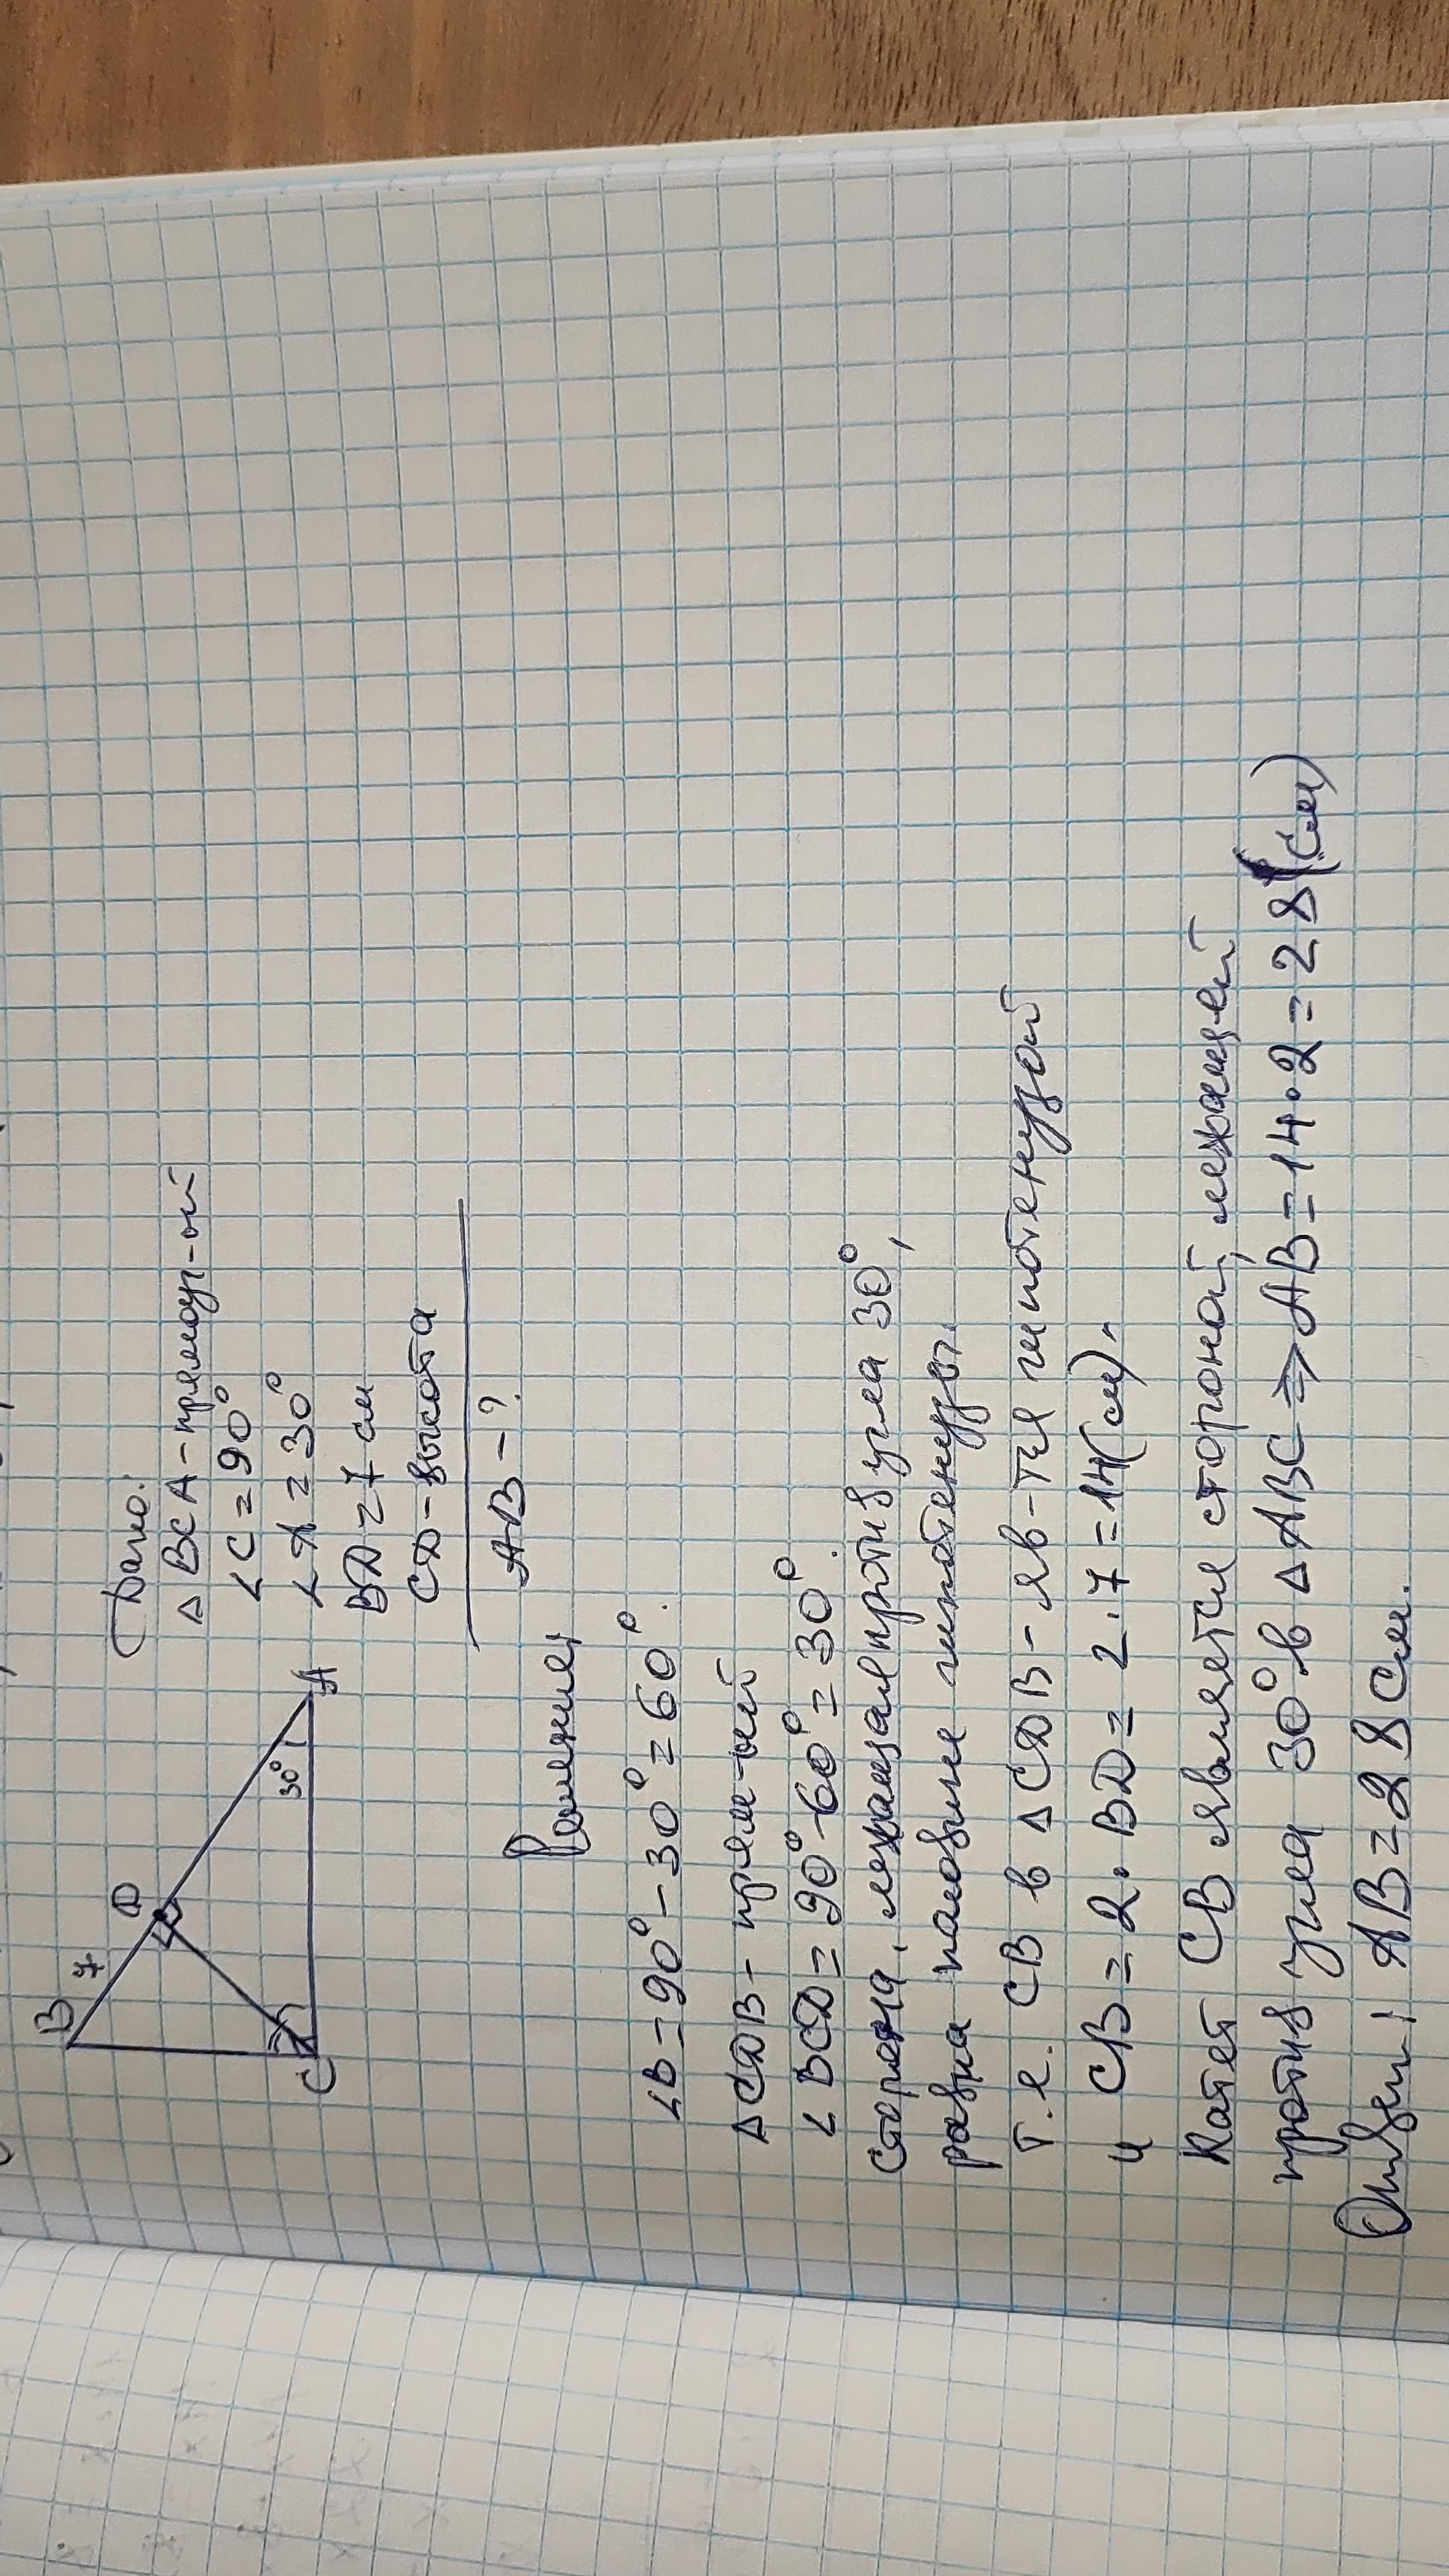 B
7
D
30°
A
C
Дано:
△ BCA - прямоуг-ый
∠C = 90°
∠A = 30°
BD = 7 см
CD - высота
AB - ?
Решение:
∠B = 90° - 30° = 60°.
△ CDB - прям-ый
∠ BCD = 90° - 60° = 30°.
Сторона, лежащая против угла 30°,
равна половине гипотенузы.
т.е. CB в △ CDB - яв-тся гипотенузой
и CB = 2 · BD = 2 · 7 = 14 (см).
Катет CB является стороной, лежащей
против угла 30° в △ ABC ⇒ AB = 14 · 2 = 28 (см)
Ответ: AB = 28 см.